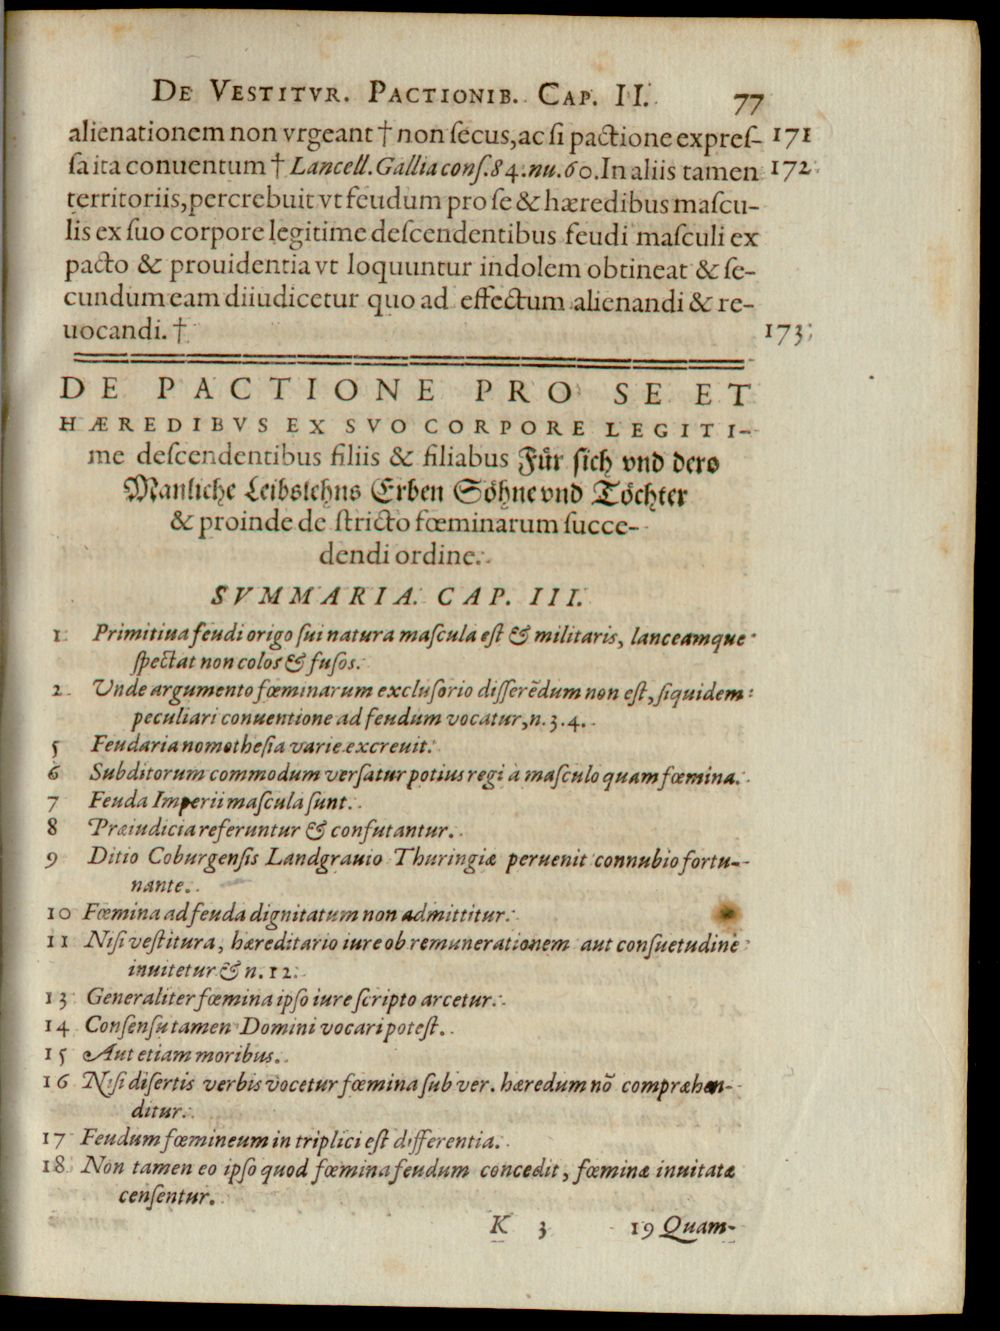 De Vestitvr. Pactionib. Cap. II. 77
alienationem non vrgeant † non ſecus, ac ſi pactione expreſ- 171
ſa ita conuentum † Lancell. Gallia conſ. 84. nu. 60. In aliis tamen 172
territoriis, percrebuit vt feudum pro ſe & hæredibus maſcu-
lis ex ſuo corpore legitime deſcendentibus feudi maſculi ex
pacto & prouidentia vt loquuntur indolem obtineat & ſe-
cundum eam diiudicetur quo ad effectum alienandi & re-
uocandi. † 173
DE PACTIONE PRO SE ET
HÆREDIBVS EX SVO CORPORE LEGITI-
me deſcendentibus filiis & filiabus Für ſich vnd dero
Manliche Leibslehns Erben Söhne vnd Töchter
& proinde de ſtricto fœminarum ſucce-
dendi ordine.
SVMMARIA. CAP. III.
1 Primitiua feudi origo ſui natura maſcula eſt & militaris, lanceamque
ſpectat non colos & fuſos.
2 Unde argumento fœminarum excluſorio differẽdum non eſt, ſiquidem
peculiari conuentione ad feudum vocatur, n. 3. 4.
5 Feudaria nomotheſia varie excreuit.
6 Subditorum commodum verſatur potius regi à maſculo quam fœmina.
7 Feuda Imperii maſcula ſunt.
8 Præiudicia referuntur & confutantur.
9 Ditio Coburgenſis Landgrauio Thuringiæ peruenit connubio fortu-
nante.
10 Fœmina ad feuda dignitatum non admittitur.
11 Niſi veſtitura, hæreditario iure ob remunerationem aut conſuetudine
inuitetur & n. 12.
13 Generaliter fœmina ipſo iure ſcripto arcetur.
14 Conſenſu tamen Domini vocari poteſt.
15 Aut etiam moribus.
16 Niſi diſertis verbis vocetur fœmina ſub ver. hæredum nõ compræhen-
ditur.
17 Feudum fœmineum in triplici eſt differentia.
18 Non tamen eo ipſo quod fœmina feudum concedit, fœminæ inuitatæ
cenſentur.
K 3 19 Quam-